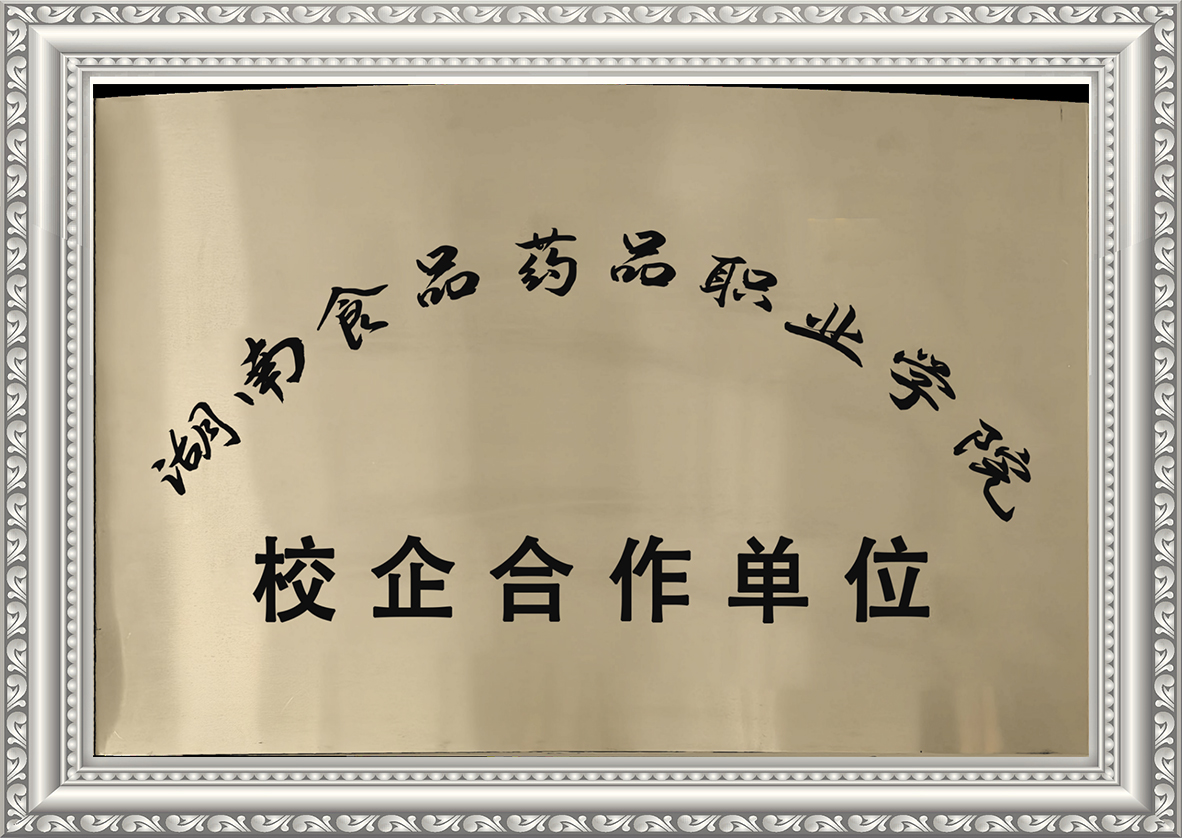 湖南食品药品职业学院
校企合作单位